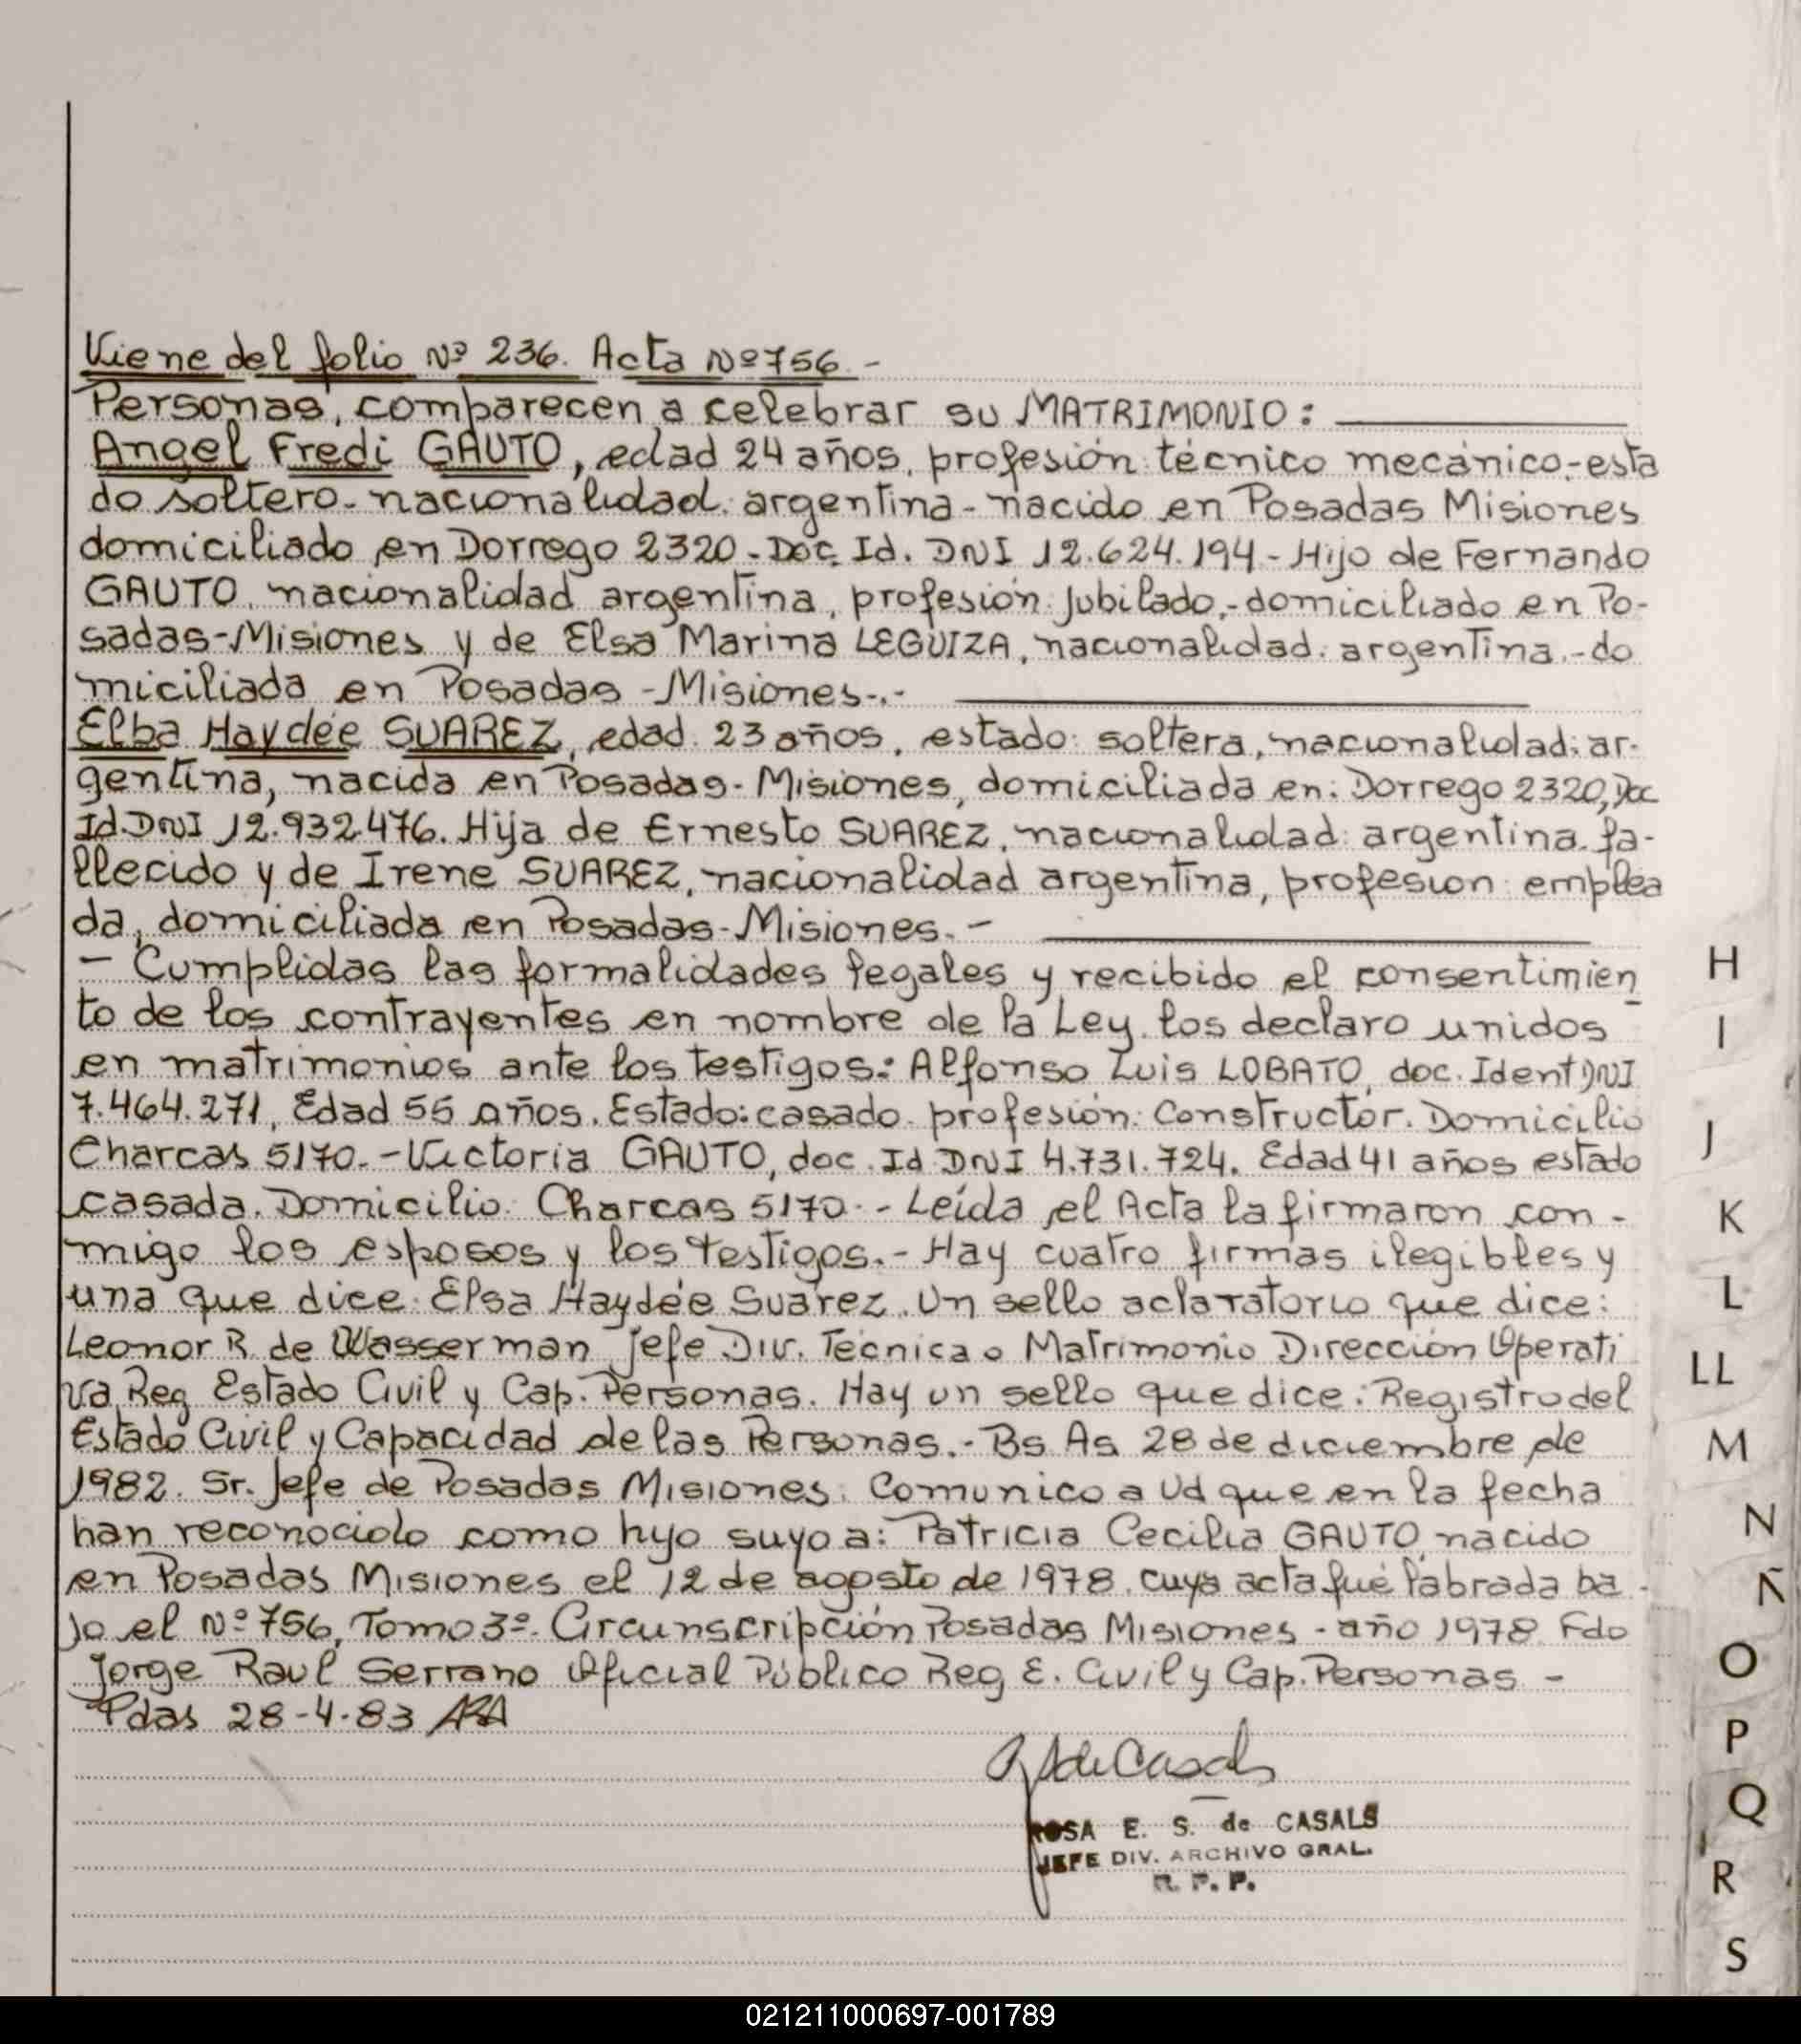 Viene del folio Nº 236. Acta Nº 756.-
Personas, comparecen a celebrar su MATRIMONIO:
Angel Fredi GAUTO, edad 24 años, profesión: técnico mecánico,-esta
do soltero- nacionalidad: argentina- nacido en Posadas Misiones
domiciliado en Dorrego 2320- Doc. Id. DNI 12.624.194- Hijo de Fernando
GAUTO, nacionalidad argentina, profesión: Jubilado,-domiciliado en Po-
sadas-Misiones y de Elsa Marina LEGUIZA, nacionalidad: argentina.-do
miciliada en Posadas -Misiones-.-
Elba Haydée SUAREZ, edad: 23 años, estado: soltera, nacionalidad: ar-
gentina, nacida en Posadas- Misiones, domiciliada en: Dorrego 2320, Doc
Id. DNI 12.932.476. Hija de Ernesto SUAREZ, nacionalidad: argentina. fa-
llecido y de Irene SUAREZ, nacionalidad argentina, profesion: emplea
da, domiciliada en Posadas-Misiones.-
- Cumplidas las formalidades legales y recibido el consentimien
to de los contrayentes en nombre de la Ley, los declaro unidos
en matrimonios ante los testigos: Alfonso Luis LOBATO, doc. Ident DNI
7.464.271, Edad 56 años. Estado: casado. profesión: Constructor. Domicilio
Charcas 5170.-Victoria GAUTO, doc. Id DNI 4.731.724. Edad 41 años estado
casada. Domicilio: Charcas 5170.- Leída el Acta la firmaron con-
migo los esposos y los testigos.- Hay cuatro firmas ilegibles y
una que dice: Elsa Haydée Suárez. Un sello aclaratorio que dice:
Leonor R. de Wasserman Jefe Div. Técnica o Matrimonio Dirección Operati
va Reg Estado Civil y Cap. Personas. Hay un sello que dice: Registro del
Estado Civil y Capacidad de las Personas.- Bs As 28 de diciembre de
1982. Sr. Jefe de Posadas Misiones: Comunico a Ud que en la fecha
han reconocido como hijo suyo a: Patricia Cecilia GAUTO, nacido
en Posadas Misiones el 12 de agosto de 1978. cuya acta fué labrada ba-
jo el Nº 756, Tomo 3º. Circunscripción Posadas Misiones - año 1978 Fdo
Jorge Raul Serrano Oficial Público Reg E. Civil y Cap. Personas -
Pdas 28-4-83
ROSA E. S. de CASALS
JEFE DIV. ARCHIVO GRAL.
R. P. P.
H
I
J
K
L
LL
M
N
Ñ
O
P
Q
R
S
021211000697-001789